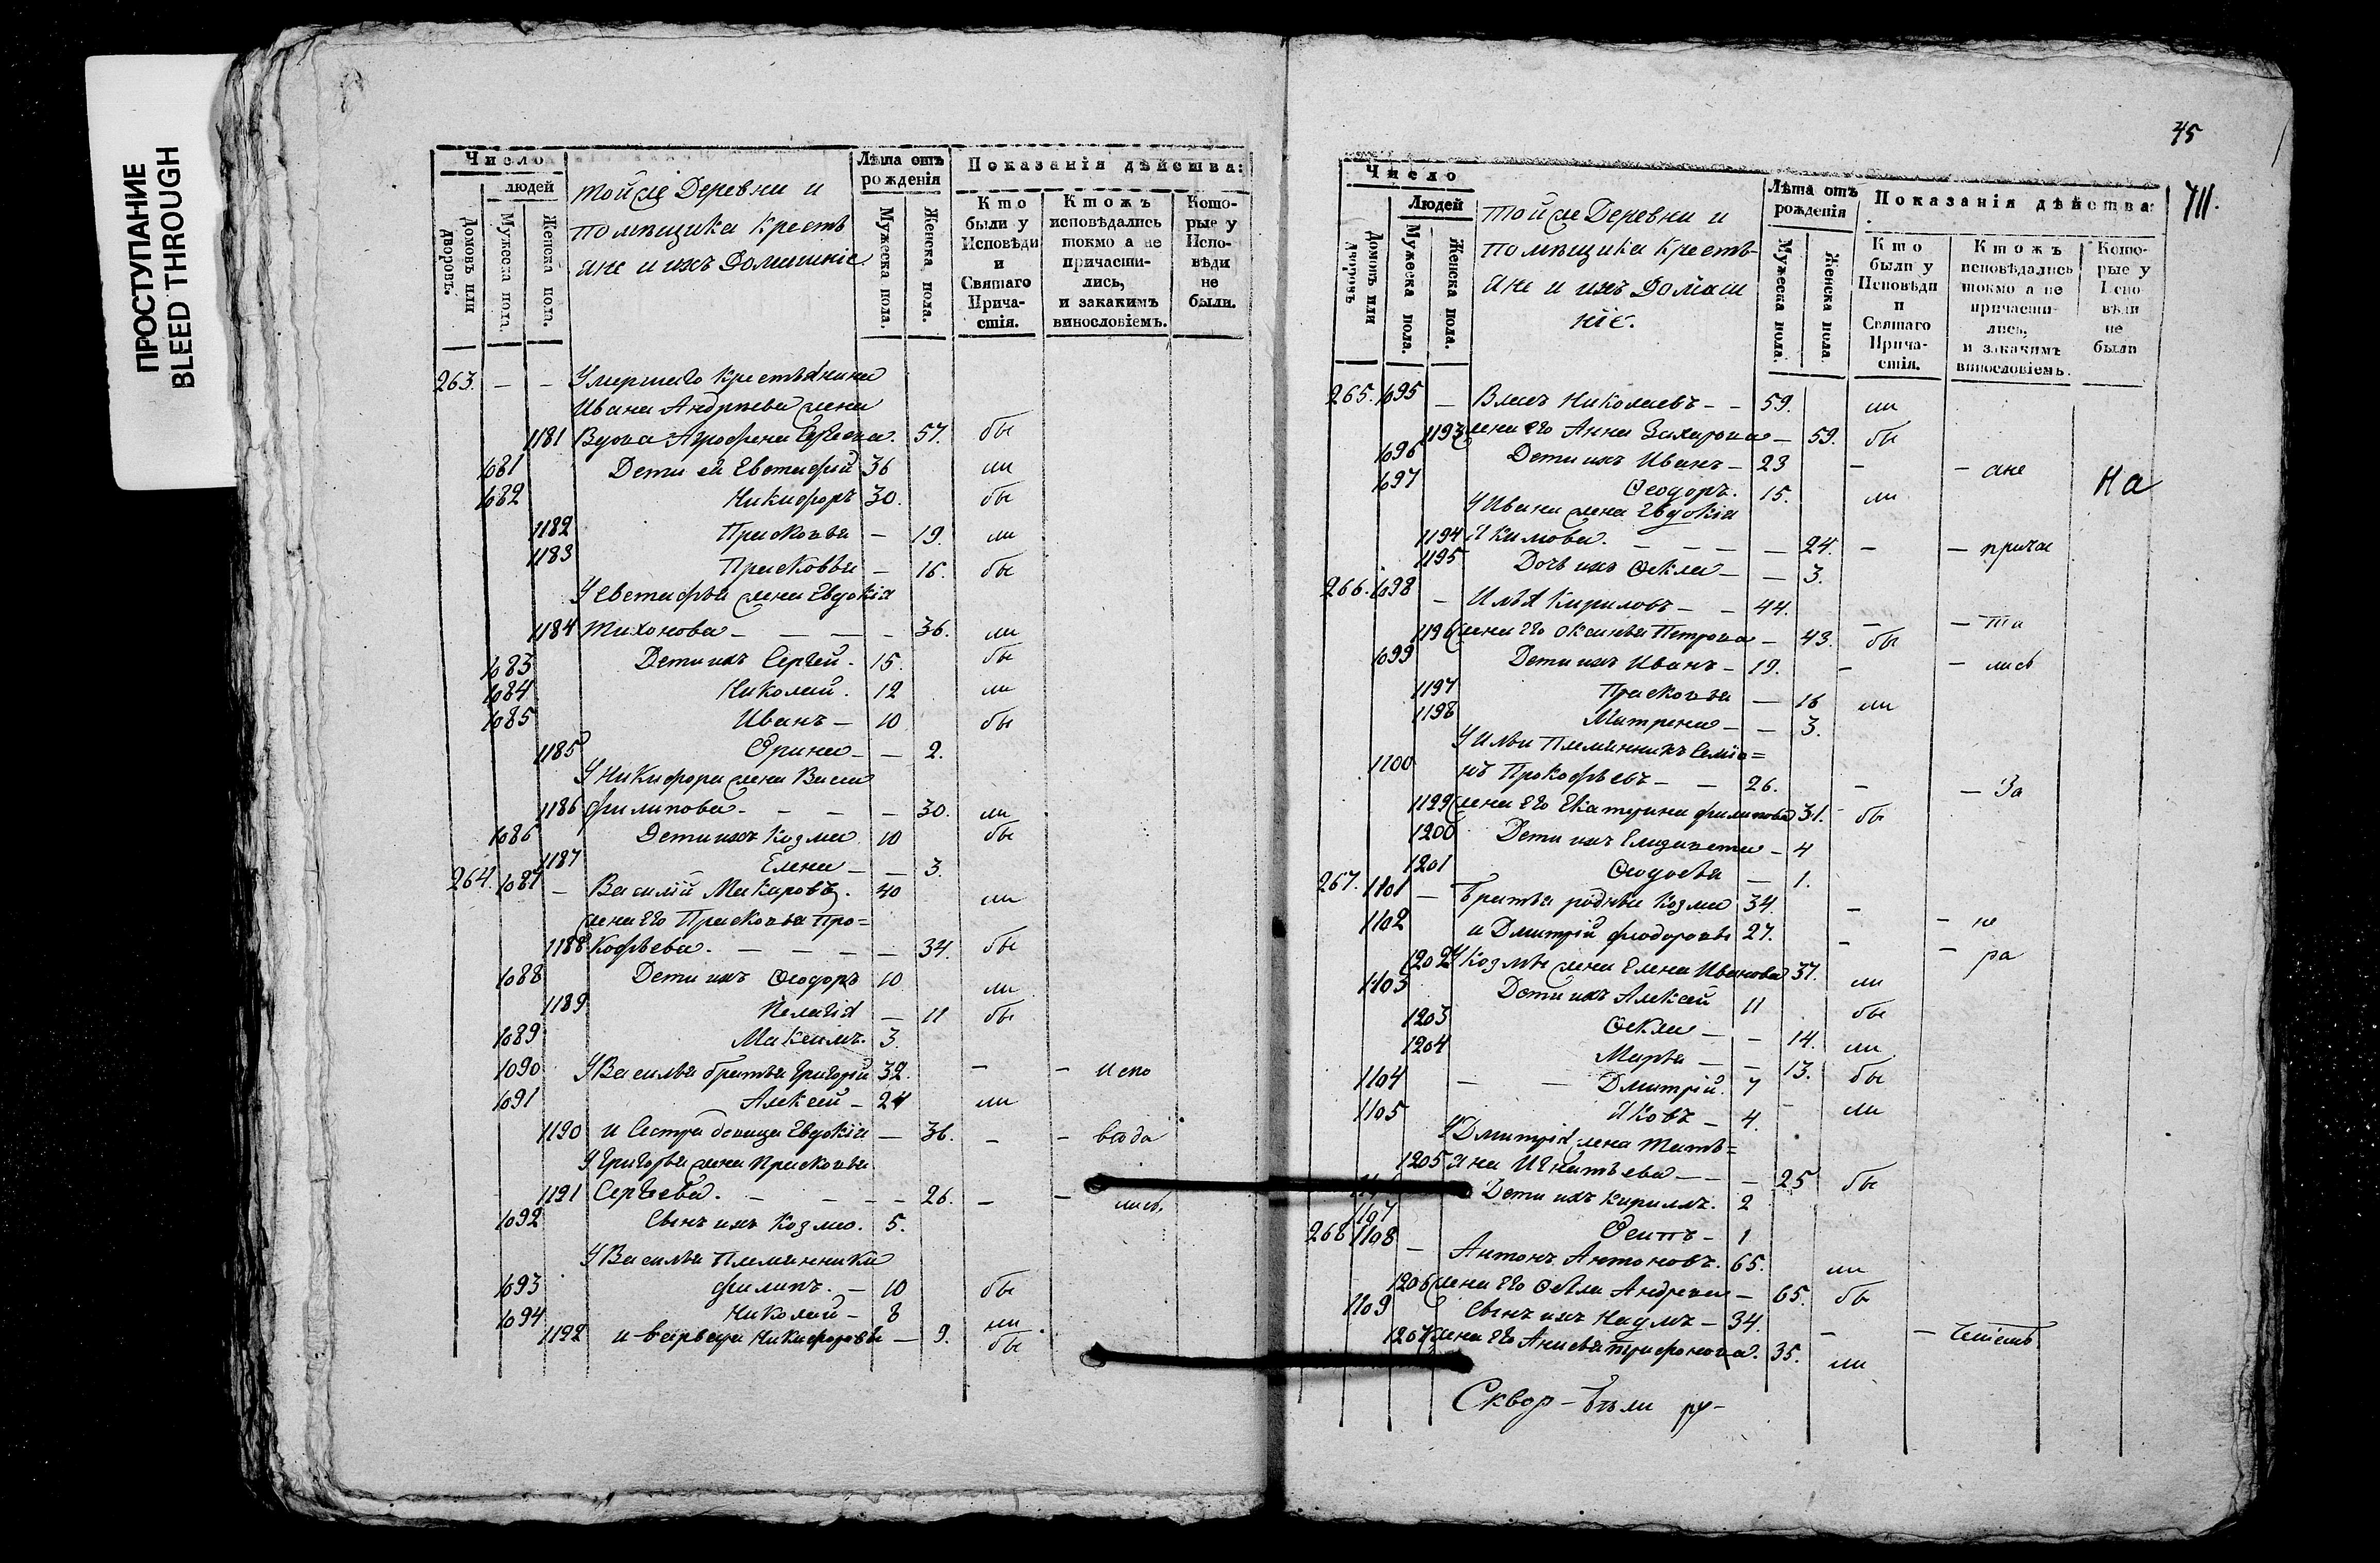 ПРОСТУПАНИЕ
BLEED THROUGH
Число
людей
Домовъ или дворовъ.
Мужеска пола.
Женска пола.
той же Деревни и
помещика крестъ
яне и ихъ Домашніе
Лѣта отъ рожденія
Мужеска пола.
Женска пола.
Показанія дѣйства:
Кто были у Исповѣди и Святаго Прича-стія.
Ктожъ исповѣдались токмо а не причасти-лись, и закакимъ винословіемъ.
Кото-рые у Испо-вѣди не были.
263. — — Умершаго крестьянина
Ивана Андреева жена
1181 Вдова Агрофена 57. бы
1081 Дети ей Евстафій 36 ли
1082 Никифоръ 30. бы
1182 Прасковья — 19. ли
1183 Прасковья — 16. бы
У Евстафья жена Евдокія
1184 Тихонова — — — — 36. ли
1083 Дети ихъ Сергей. 15. бы
1084 Николай. 12 ли
1085 Иванъ — 10 бы
1185 Ѳрина — — 2.
У Никифора жена Васса
1186 филипова — — — — 30. ли
1086 Дети ихъ Козма 10 бы
1187 Елена — — 3.
264. 1087 — Василій Макаровъ. 40 ли
жена его Прасковья Про=
1188 кофьева. — — — — 34. бы
1088 Дети ихъ Ѳеодоръ 10 ли
1189 Пелагія — 11 бы
1089 Максимъ. 3.
1090 У Василья братья Григорій 32. — — испо
1091 Алексей — 24 ли
1190 и Сестра девица Евдокія — 36. — — веда
У Григорья жена Прасковья
1191 Сергеева. — — — — 26. — — лись,
1092 Сынъ ихъ Козма. 5.
У Василья Племянники
1093 филипъ. — 10 бы
1094 Николай — 8 ли
1192 и варвара Никифоровы — 9. бы
45
711.
Число
Людей
Домовъ или дворовъ
Мужеска пола.
Женска пола.
той же Деревни и
помещика кресть-
яне и ихъ Домаш
ніе.
Лѣта отъ рожденія
Мужеска пола.
Женска пола
Показанія дѣйства
Кто были у Исповѣди и Святаго Прича-стія.
Ктожъ исповѣдались токмо а не причасти-лись, и закакимъ винословіемъ.
Кото-рые у Испо вѣди не были
265. 1095 — Власъ Николаевъ — — 59. ли
1193 жена его Анна Захарова — 59. бы
1096 Дети ихъ Иванъ — 23 — — ане
На
1097 Ѳеодоръ. 15. ли
У Ивана жена Евдокія
1194 Якимова. — — — — 24. — — прича
1195 Дочь ихъ Ѳекла — — 3.
266. 1098 — Илья Кириловъ — — 44. — — ста
1196 жена его Оксинья Петрова — 43. бы
1099 Дети ихъ Иванъ — 19. — — лись
1197 Прасковья — 16 ли
1198 Матрена — — 3.
У Ильи Племянникъ Семіо=
1100 нъ Прокофьевъ — — 26. — — За
1199 жена его Екатерина филипова 31. бы
1200 Дети ихъ Елизавета — 4
1201 Ѳеодосья — 1.
267. 1101 — Братья родные Козма 34. — — не
1102 и Дмитрій феодоровы 27. — — ра
1202 У Козмы жена Елена Иванова 37. ли
1103 Дети ихъ Алексей 11 бы
1203 Ѳекла — — 14. ли
1204 Марья — — 13. бы
1104 — — Дмитрій. 7 ли
1105 Яковъ — 4.
У Дмитрія жена Тать=
1205 яна Игнатьева — — — 25 бы
Дети ихъ кирилъ. 2
1107 — 1
268 1108 — Антонъ Антоновъ. 65. ли
1206 жена его Ѳекла Андреева — 65. бы
1109 Сынъ ихъ Наумъ — 34. — — ченіемъ
1207 жена его Анисья трифонова. 35. ли
Сквор — ру-